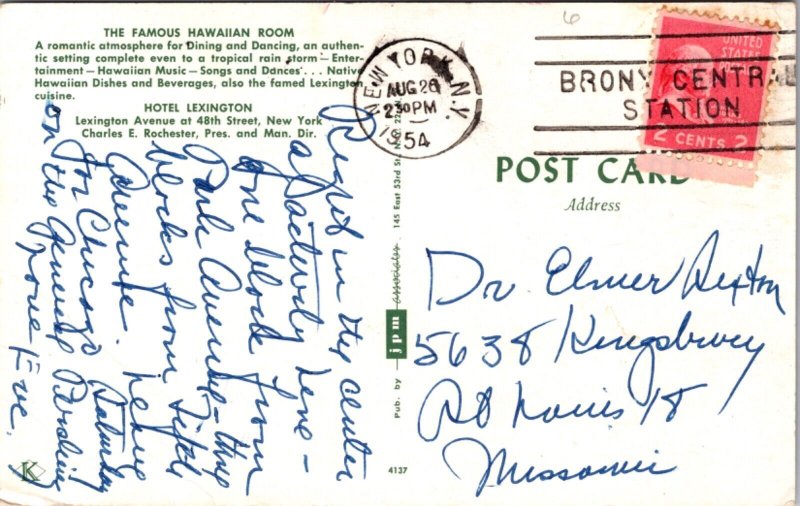 THE FAMOUS HAWAIIAN ROOM
A romantic atmosphere for Dining and Dancing, an authen-
tic setting complete even to a tropical rain storm — Enter-
tainment — Hawaiian Music — Songs and Dances . . . Native
Hawaiian Dishes and Beverages, also the famed Lexington
cuisine.
HOTEL LEXINGTON
Lexington Avenue at 48th Street, New York
Charles E. Rochester, Pres. and Man. Dir.
Right in the center
of activity here –
one block from
Park Avenue – three
blocks from Fifth
Avenue. Leave
for Chicago Saturday
on the General Pershing
Love Eve.
K
4137
Pub. by jpm associates, 145 East 53rd St., N.Y. 22
NEW YORK, N.Y.
AUG 26
2 30 PM
1954
6
BRONX CENTRAL
STATION
UNITED
STATES
2 CENTS 2
POST CARD
Address
Dr. Elmer Sexton
5638 Kingsbury
St Louis 18
Missouri